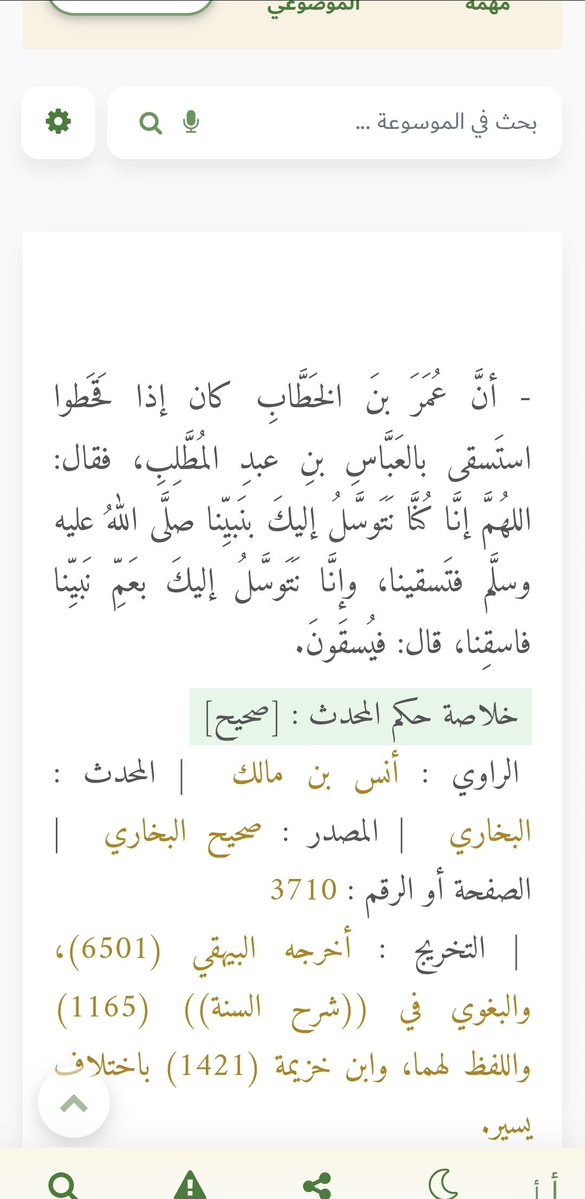 مهمة الموضوعي
بحث في الموسوعة ...
- أنَّ عُمَرَ بنَ الخَطَّابِ كان إذا قَحَطوا
استَسقى بالعَبَّاسِ بنِ عبدِ المُطَّلِبِ، فقال:
اللهُمَّ إنَّا كُنَّا نَتَوسَّلُ إليكَ بنَبيِّنا صلَّى اللهُ عليه
وسلَّم فتَسقينا، وإنَّا نَتَوسَّلُ إليكَ بعَمِّ نَبيِّنا
فاسقِنا، قال: فيُسقَونَ.
خلاصة حكم المحدث : [صحيح]
الراوي : أنس بن مالك | المحدث :
البخاري | المصدر : صحيح البخاري |
الصفحة أو الرقم : 3710
| التخريج : أخرجه البيهقي (6501)،
والبغوي في ((شرح السنة)) (1165)
واللفظ لهما، وابن خزيمة (1421) باختلاف
يسير.
أ أ